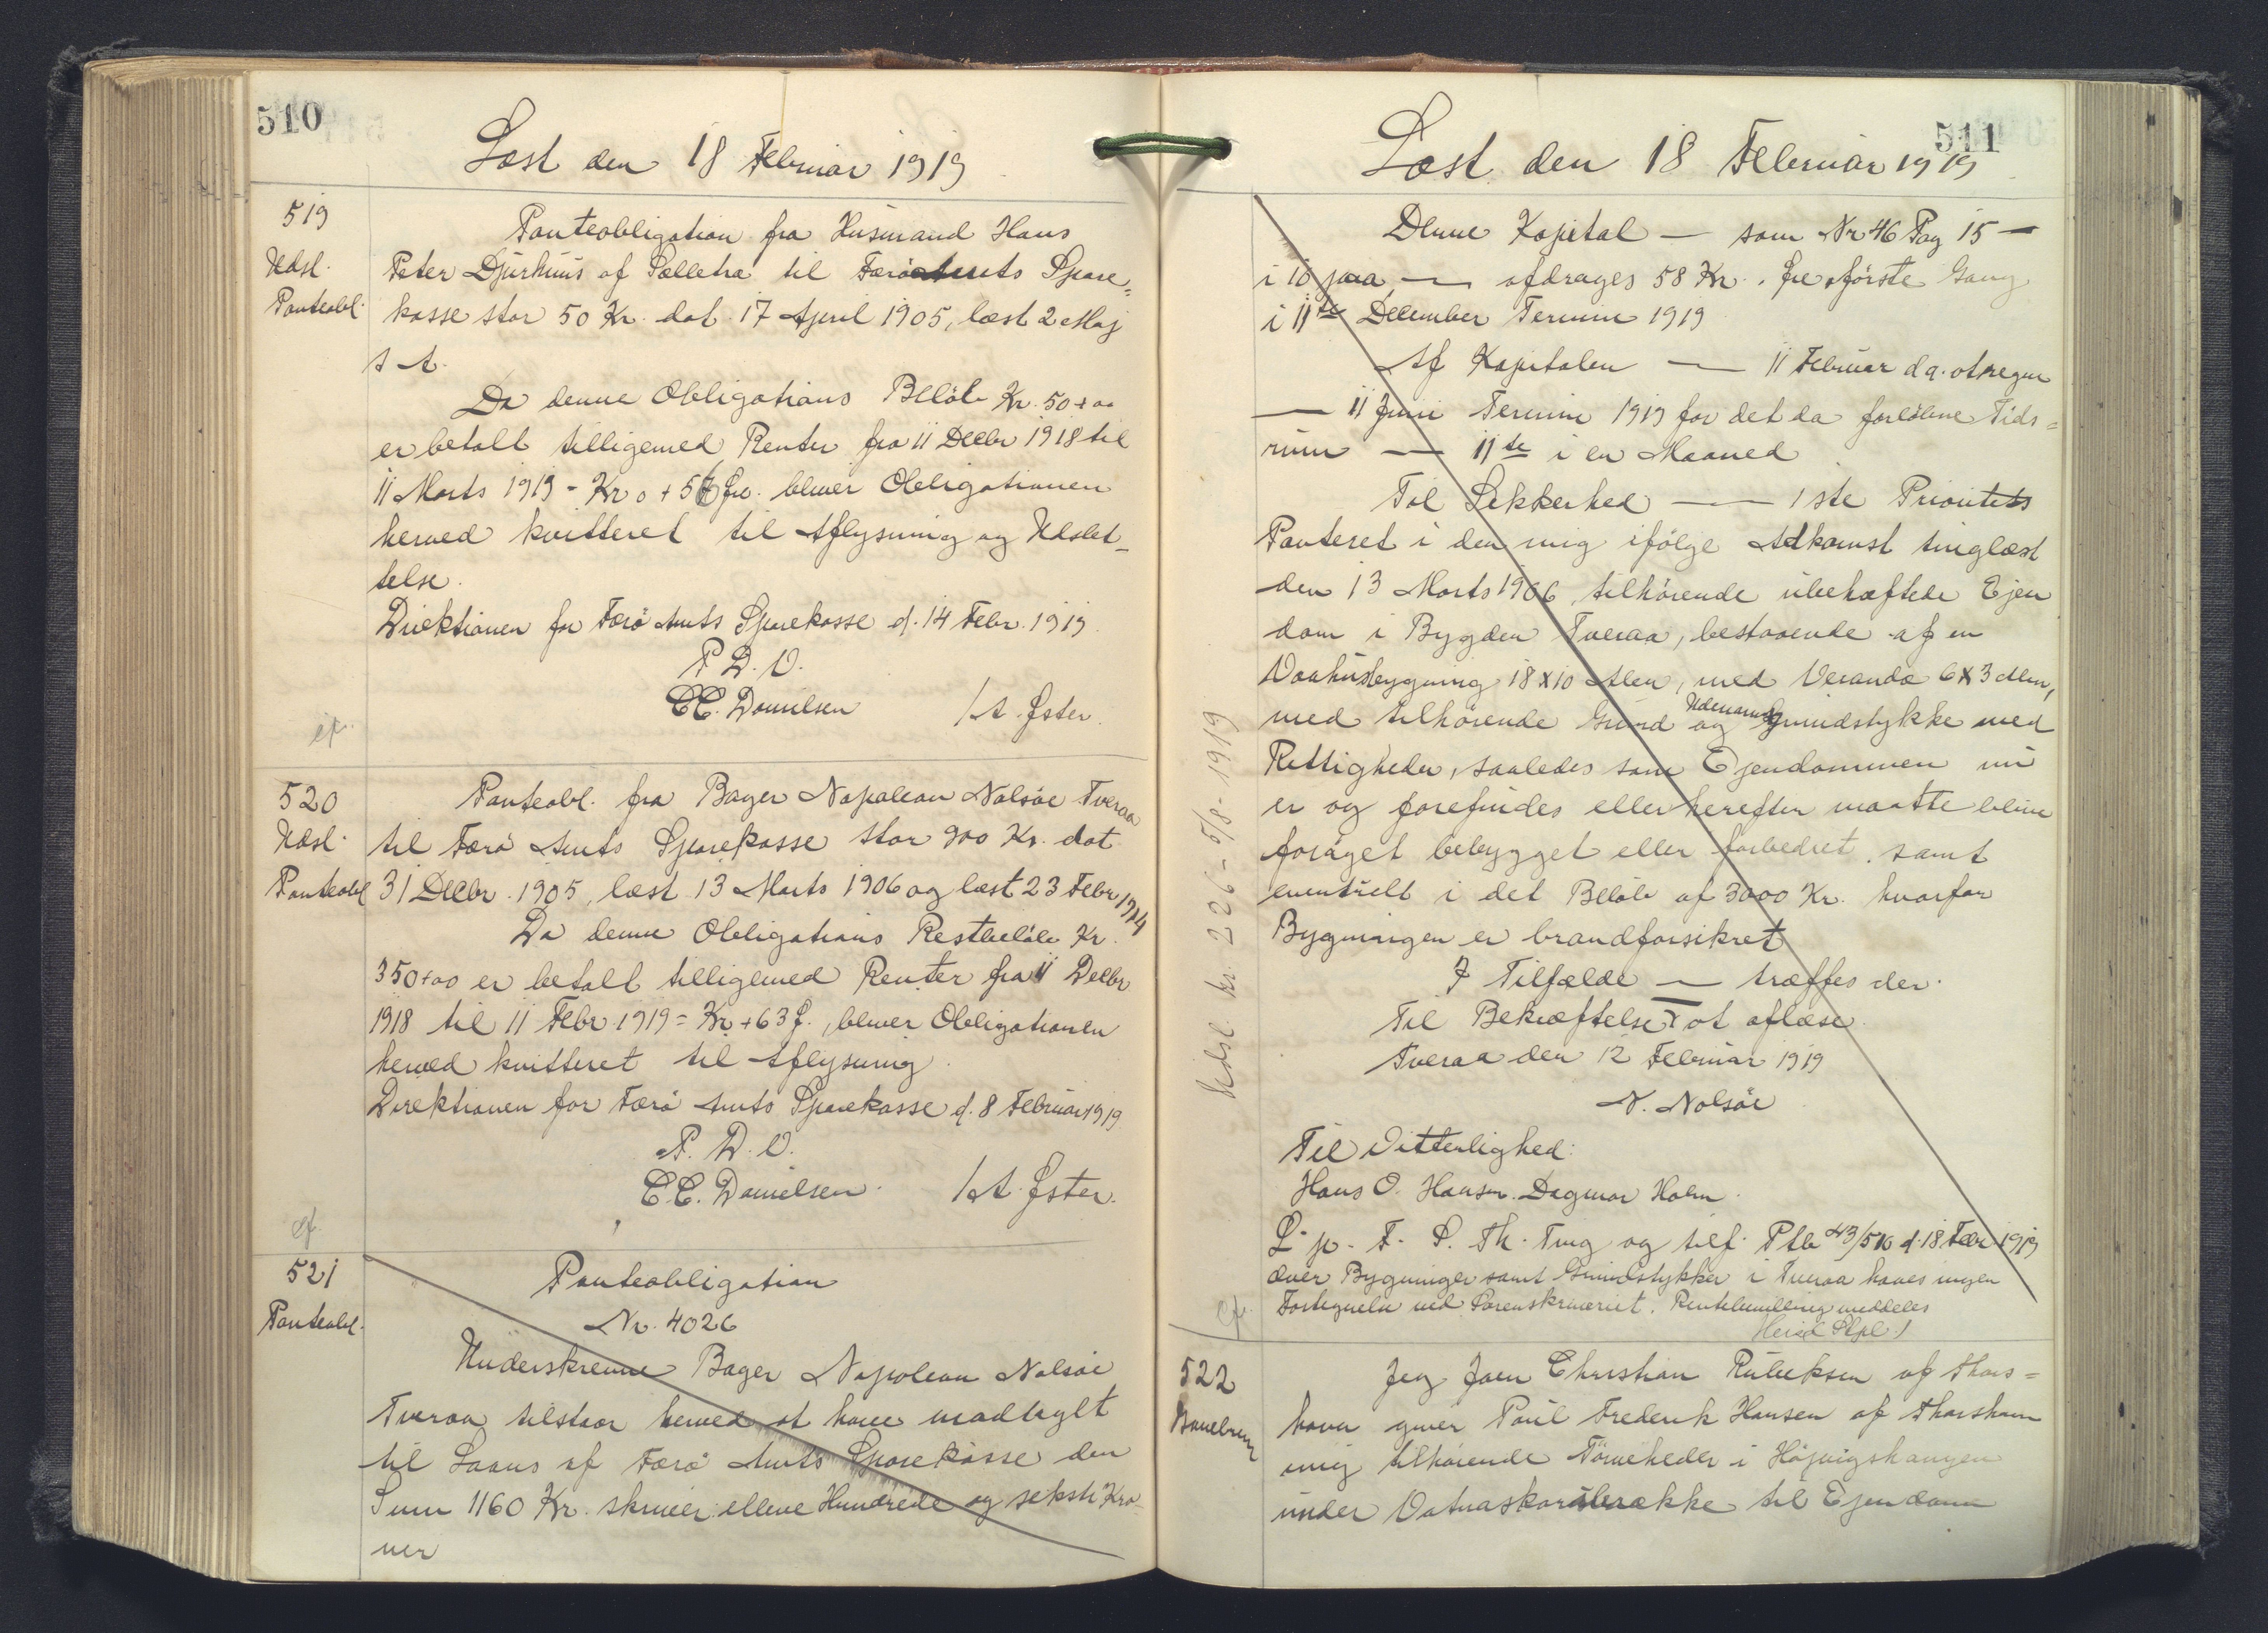 510
Læst den 18 Februar 1919
519
Udsl.
Panteobl.
Panteobligation fra Husmand Hans
Peter Djurhuus af Selletræ til Færö Amts Spare=
kasse stor 50 Kr. dat. 17 April 1905, læst 2 Maj
s. A.
Da denne Obligations Beløb Kr. 50+00
er betalt tilligemed Renter fra 11 Decbr 1918 til
11 Marts 1919 = Kr 0+56 Øre. bliver Obligationen
herved kvitteret til Aflysning og Udslet-
telse.
Direktionen for Færö Amts Sparekasse d. 14 Febr. 1919.
P. D. V.
C.C. Danielsen / A. Øster.
cf.
520
Udsl.
Panteobl
Panteobl. fra Bager Napolean Nolsøe Tveraa
til Færö Amts Sparekasse stor 900 Kr. dat
31 Decbr. 1905, læst 13 Marts 1906 og læst 23 Febr 1914
Da denne Obligations Restbeløb Kr.
350+00 er betalt tilligemed Renter fra 11 Decbr
1918 til 11 Febr 1919 = Kr +63 Ø., bliver Obligationen
herved kvitteret til Aflysning
Direktionen for Færö Amts Sparekasse d. 8 Februar 1919
P. D. V.
C.C. Danielsen. / A. Øster.
cf.
521
Panteobl.
Panteobligation
Nr. 4026
Underskrevne Bager Napolean Nolsøe
Tveraa tilstaar herved at have modtaget
til Laans af Færö Amts Sparekasse den
Sum 1160 Kr. skriver elleve Hundrede og seksti Kro-
ner
511
Læst den 18 Februar 1919
Denne Kapital — som Nr 46 Pag 15 —
i 10 Aar — afdrages 58 Kr. første Gang
i 11te December Termin 1919
Af Kapitalen — 11 Februar d. A. at regne
— 11 Juni Termin 1919 for det da forløbne Tids=
rum — 11te i en Maaned
Til Sikkerhed — 1ste Prioritets
Panteret i den mig ifølge Adkomst tinglæst
den 13 Marts 1906 tilhørende ubehæftede Ejen
dom i Bygden Tveraa, bestaaende af en
Vaahusbygning 18 x 10 Alen, med Veranda 6 x 3 Alen,
med tilhørende Grund og Udenoms Grundstykke med
Rettigheder, saaledes som Ejendommen nu
er og forefindes eller herefter maatte blive
forøget bebygget eller forbedret, samt
eventuelt i det Beløb af 3000 Kr. hvorfor
Bygningen er brandforsikret
I Tilfælde — træffes der.
Til Bekræftelse — at aflæse.
Tveraa den 12 Februar 1919
N. Nolsøe
Til Vitterlighed:
Hans O. Hansen. Dagmar Holm.
L. p. T. S. Th. Ting og tilf. Ptb 43/516 d. 18 Febr 1919
over Bygninger samt Grundstykker i Tveraa haves ingen
Fortegnelse ved Sorenskriveriet. Rentebevilling meddeles
cf.
Udsl. kr. 226 - 5/8 - 1919
522
Jeg Joen Christian Rubeksen af Thors=
havn giver Poul Frederik Hansen af Thorshavn
mig tilhørende Tørveheder i Højvigshaugen
under Vatnaskorsbrække til Ejendom